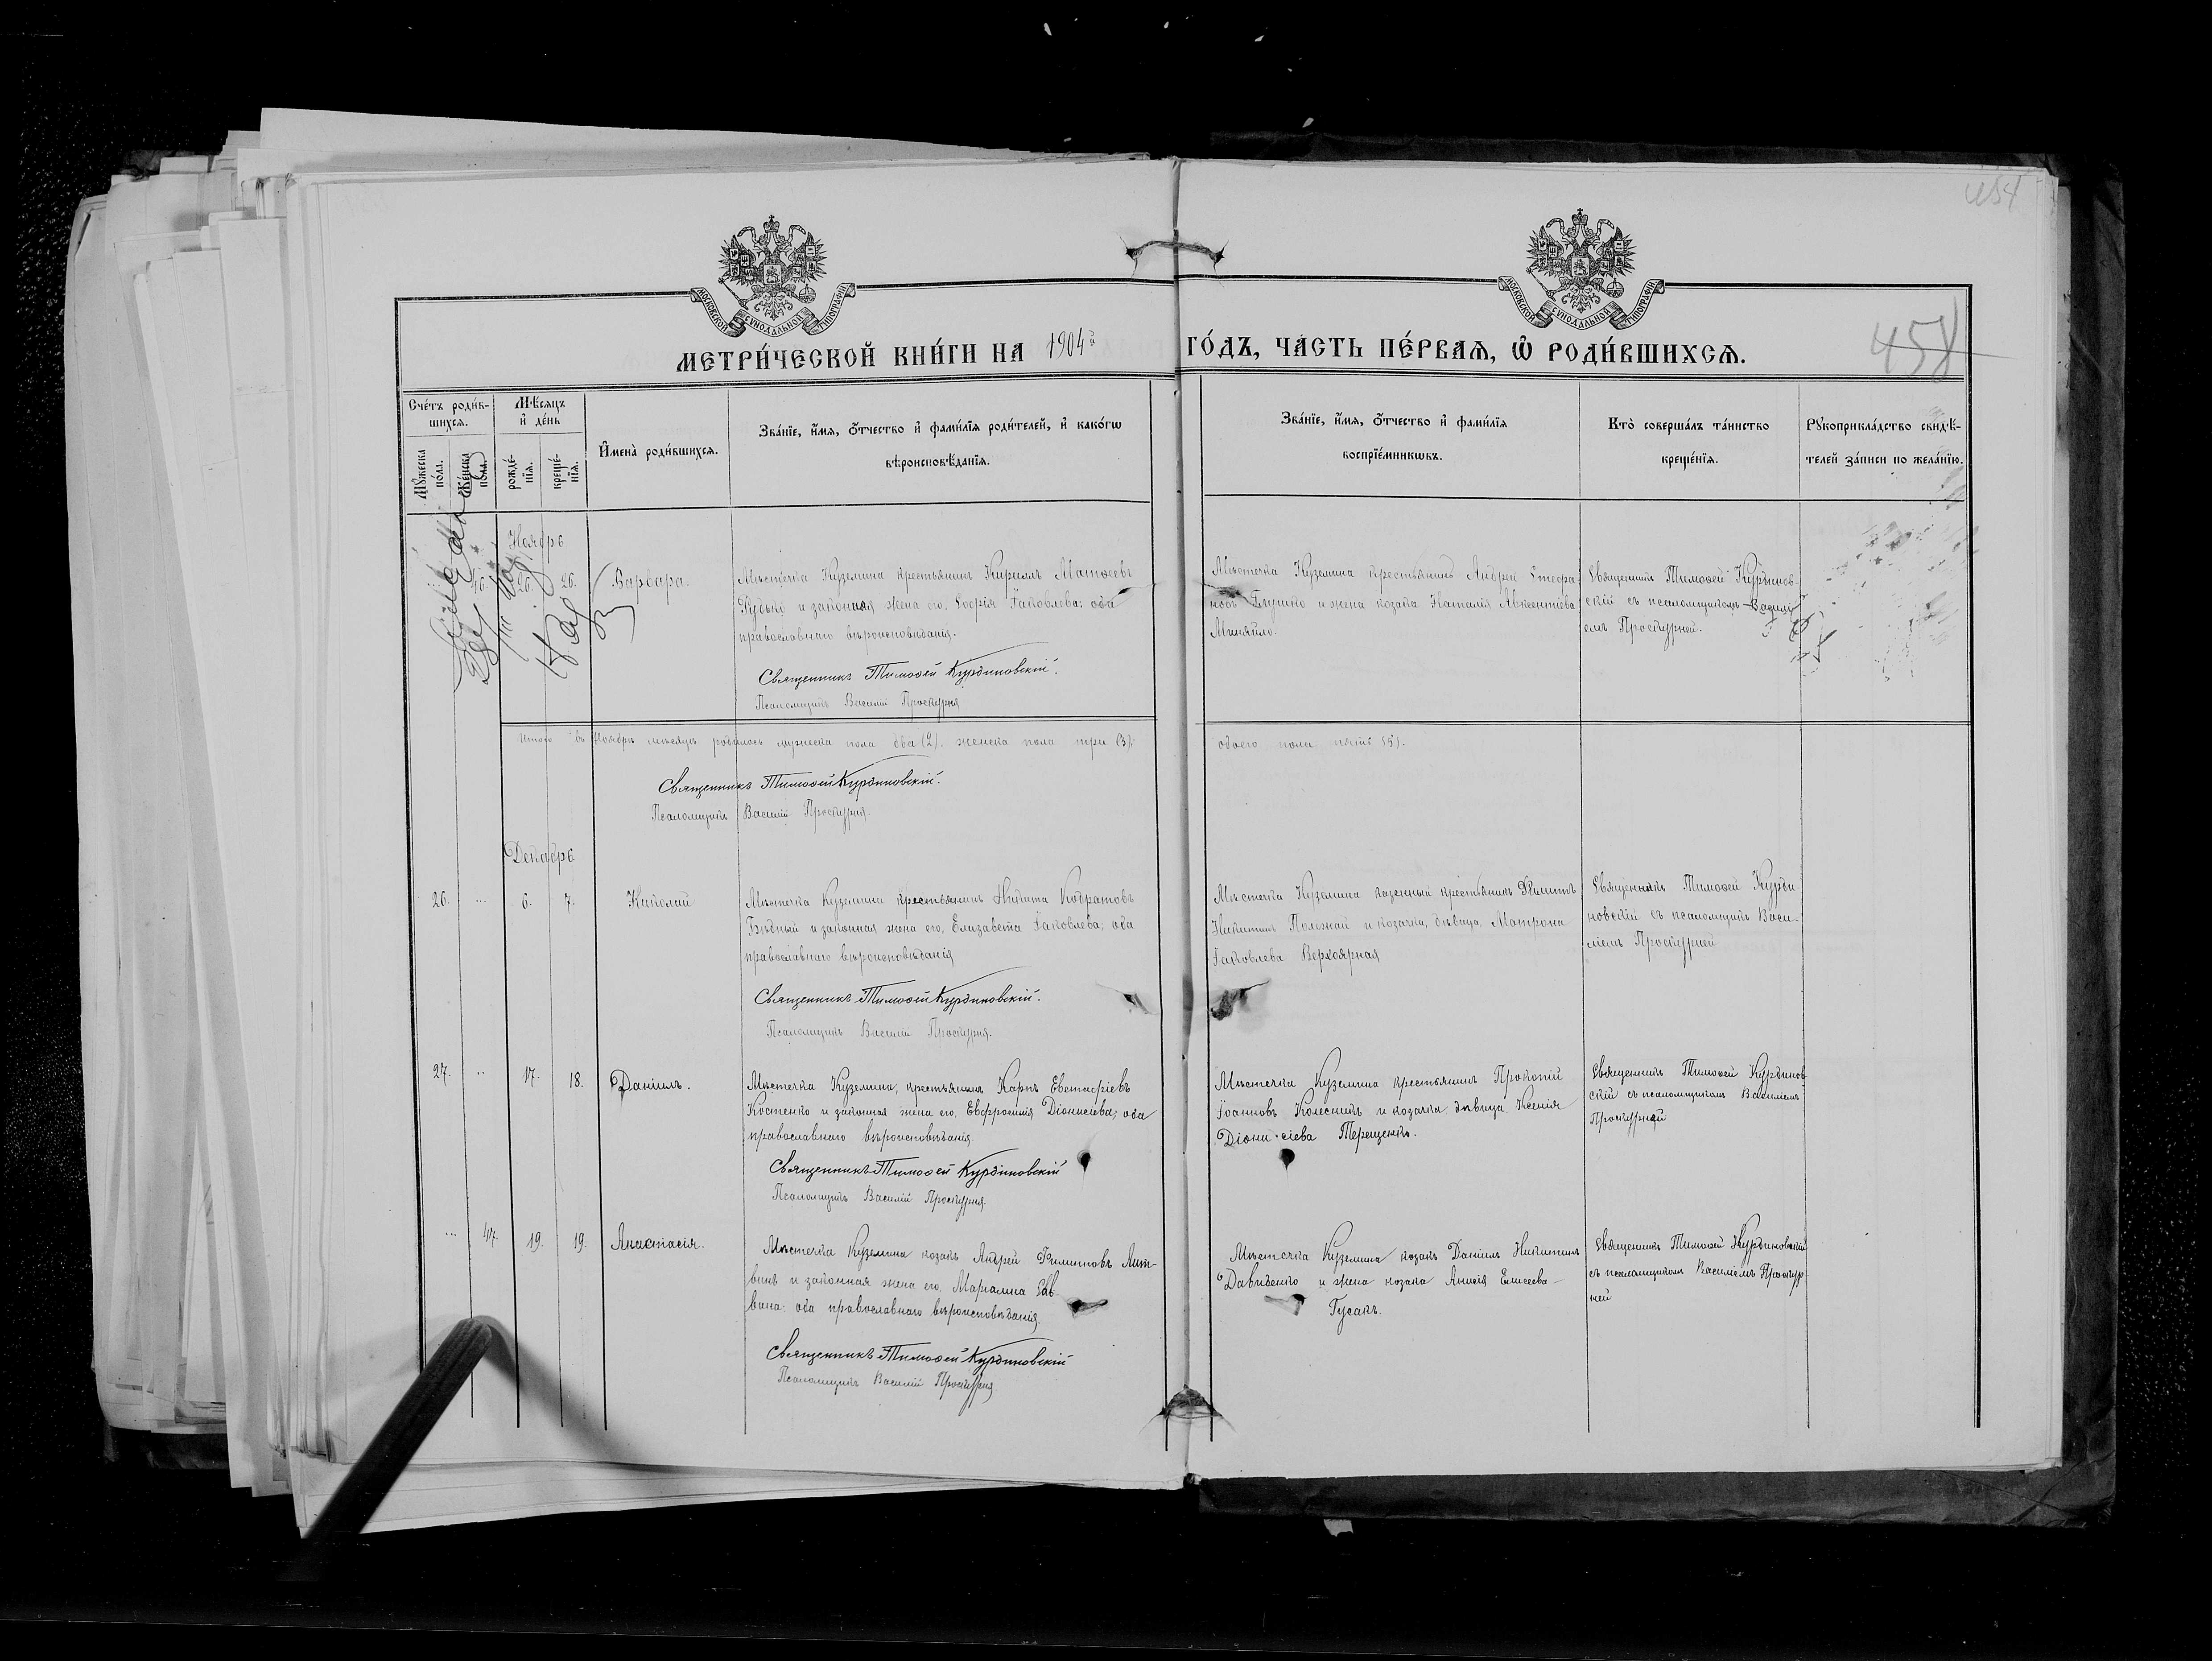 454
МОСКОВСКОЙ СУНОДАЛЬНОЙ ТИПОГРАФІИ
МОСКОВСКОЙ СУНОДАЛЬНОЙ ТИПОГРАФІИ
МЕТРИ́ЧЕСКОЙ КНИ́ГИ НА 1904й ГО́ДЪ, ЧА́СТЬ ПЕ́РВАѦ, Ѽ РОДИ́ВШИХСѦ.
458
Сче́тъ роди́вшихсѧ.
Мѣ́сѧцъ и҆ де́нь
Мꙋ́жеска по́ла.
Же́нска по́ла.
рожде́нїѧ.
креще́нїѧ.
И҆мена̀ роди́вшихсѧ.
Зва́нїе, и҆́мѧ, ѻ҆́тчество и҆ фами́лїѧ роди́телей, и҆ како́гѡ
вѣроисповѣ́данїѧ.
Зва́нїе, и҆́мѧ, ѻ҆́тчество и҆ фами́лїѧ
воспрїе́мникѡвъ.
Кто̀ соверша́лъ та́инство
креще́нїѧ.
Рꙋкоприкла́дство свидѣ́-
телей за́писи по жела́нїю.
Ноябрь
46. 26. 26. Варвара.
Мѣстечка Куземина крестьянинъ Кириллъ Матѳеевъ
Гудько и законная жена его, Софія Іаковлева; оба
православнаго вѣроисповѣданія.
Священникъ Тимоѳей Курдиновскій.
Псаломщикъ Василій Проскурня
Мѣстечка Куземина крестьянинъ Андрей Стефа-
новъ Глушко и жена козака Наталія Авксентіева
Миняйло.
Священникъ Тимоѳей Курдинов-
скій съ псаломщикомъ Василі-
емъ Проскурней.
Итого въ Ноябрѣ мѣсяцѣ родилось мужеска пола два (2). женска пола три (3); обоего пола пять (5).
Священникъ Тимоѳей Курдиновскій.
Псаломщикъ Василій Проскурня.
Декабрь
26. ... 6. 7. Николай
Мѣстечка Куземина крестьянинъ Никита Кодратовъ
Бѣдный и законная жена его, Елизавета Іаковлева; оба
православнаго вѣроисповѣданія
Священникъ Тимоѳей Курдиновскій.
Псаломщикъ Василій Проскурня.
Мѣстечка Куземина казенный крестьянинъ Филиппъ
Никитинъ Полѣжай и козачка, дѣвица, Матрона
Іаковлева Верхоярная
Священникъ Тимоѳей Курди-
новскій съ псаломщикъ Васи-
ліемъ Проскурней
27. .. 17. 18. Даніилъ.
Мѣстечка Куземина, крестьянинъ Карпъ Евстафіевъ
Костенко и законная жена его, Евфросинія Діонисіева; оба
православнаго вѣроисповѣданія.
Священникъ Тимоѳей Курдиновскій
Псаломщикъ Василій Проскурня.
Мѣстечка Куземина крестьянинъ Прокопій
Іоанновъ Колесникъ и козачка дѣвица Ксенія
Діонисіева Терещенко.
Священникъ Тимоѳей Курдинов-
скій съ псаломщикомъ Василіемъ
Проскурней
... 47. 19. 19. Анастасія.
Мѣстечка Куземина козакъ Андрей Филипповъ Лит-
винъ и законная жена его, Маріамна Сав-
вина: оба православнаго вѣроисповѣданія.
Священникъ Тимоѳей Курдиновскій
Псаломщикъ Василій Проскурня
Мѣстечка Куземина козакъ Даніилъ Никитинъ
Давиденко и жена козака Анисія Елисеева
Гусакъ.
Священникъ Тимоѳей Курдиновскій
съ псаломщикомъ Василіемъ Проскур-
ней